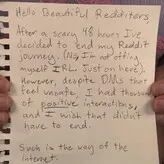 Hello Beautiful Redditors,
After a scary 48 hours I've
decided to end my Reddit
journey. (No, I'm not offing
myself IRL. Just on here).
However, despite DMs that
feel unsafe, I had thousands
of positive interactions,
and I wish that didn't
have to end.
Such is the way of the
internet.